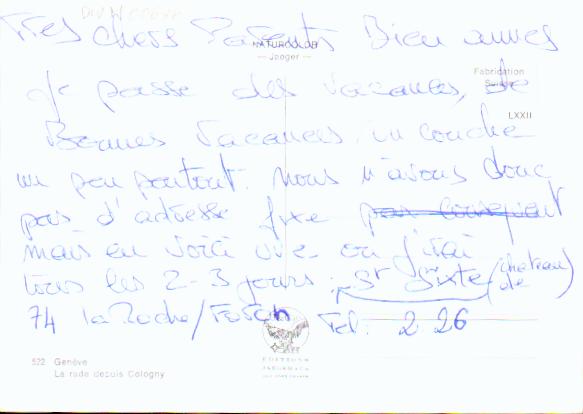 Très chers Parents Bien aimés
NATURCOLOR
— Jaeger —
Je passe des vacances, de
Fabrication
Suisse
LXXII
Bonnes Vacances. on couche
un peu partout. Nous n'avons donc
pas d'adresse fixe par conséquent
mais en voici une où j'irai
tous les 2-3 jours : St Sixte (chateau de)
74 la Roche/Foron Tel: 2 26
EDITIONS
JAEGER
522 Genève
La rade depuis Cologny